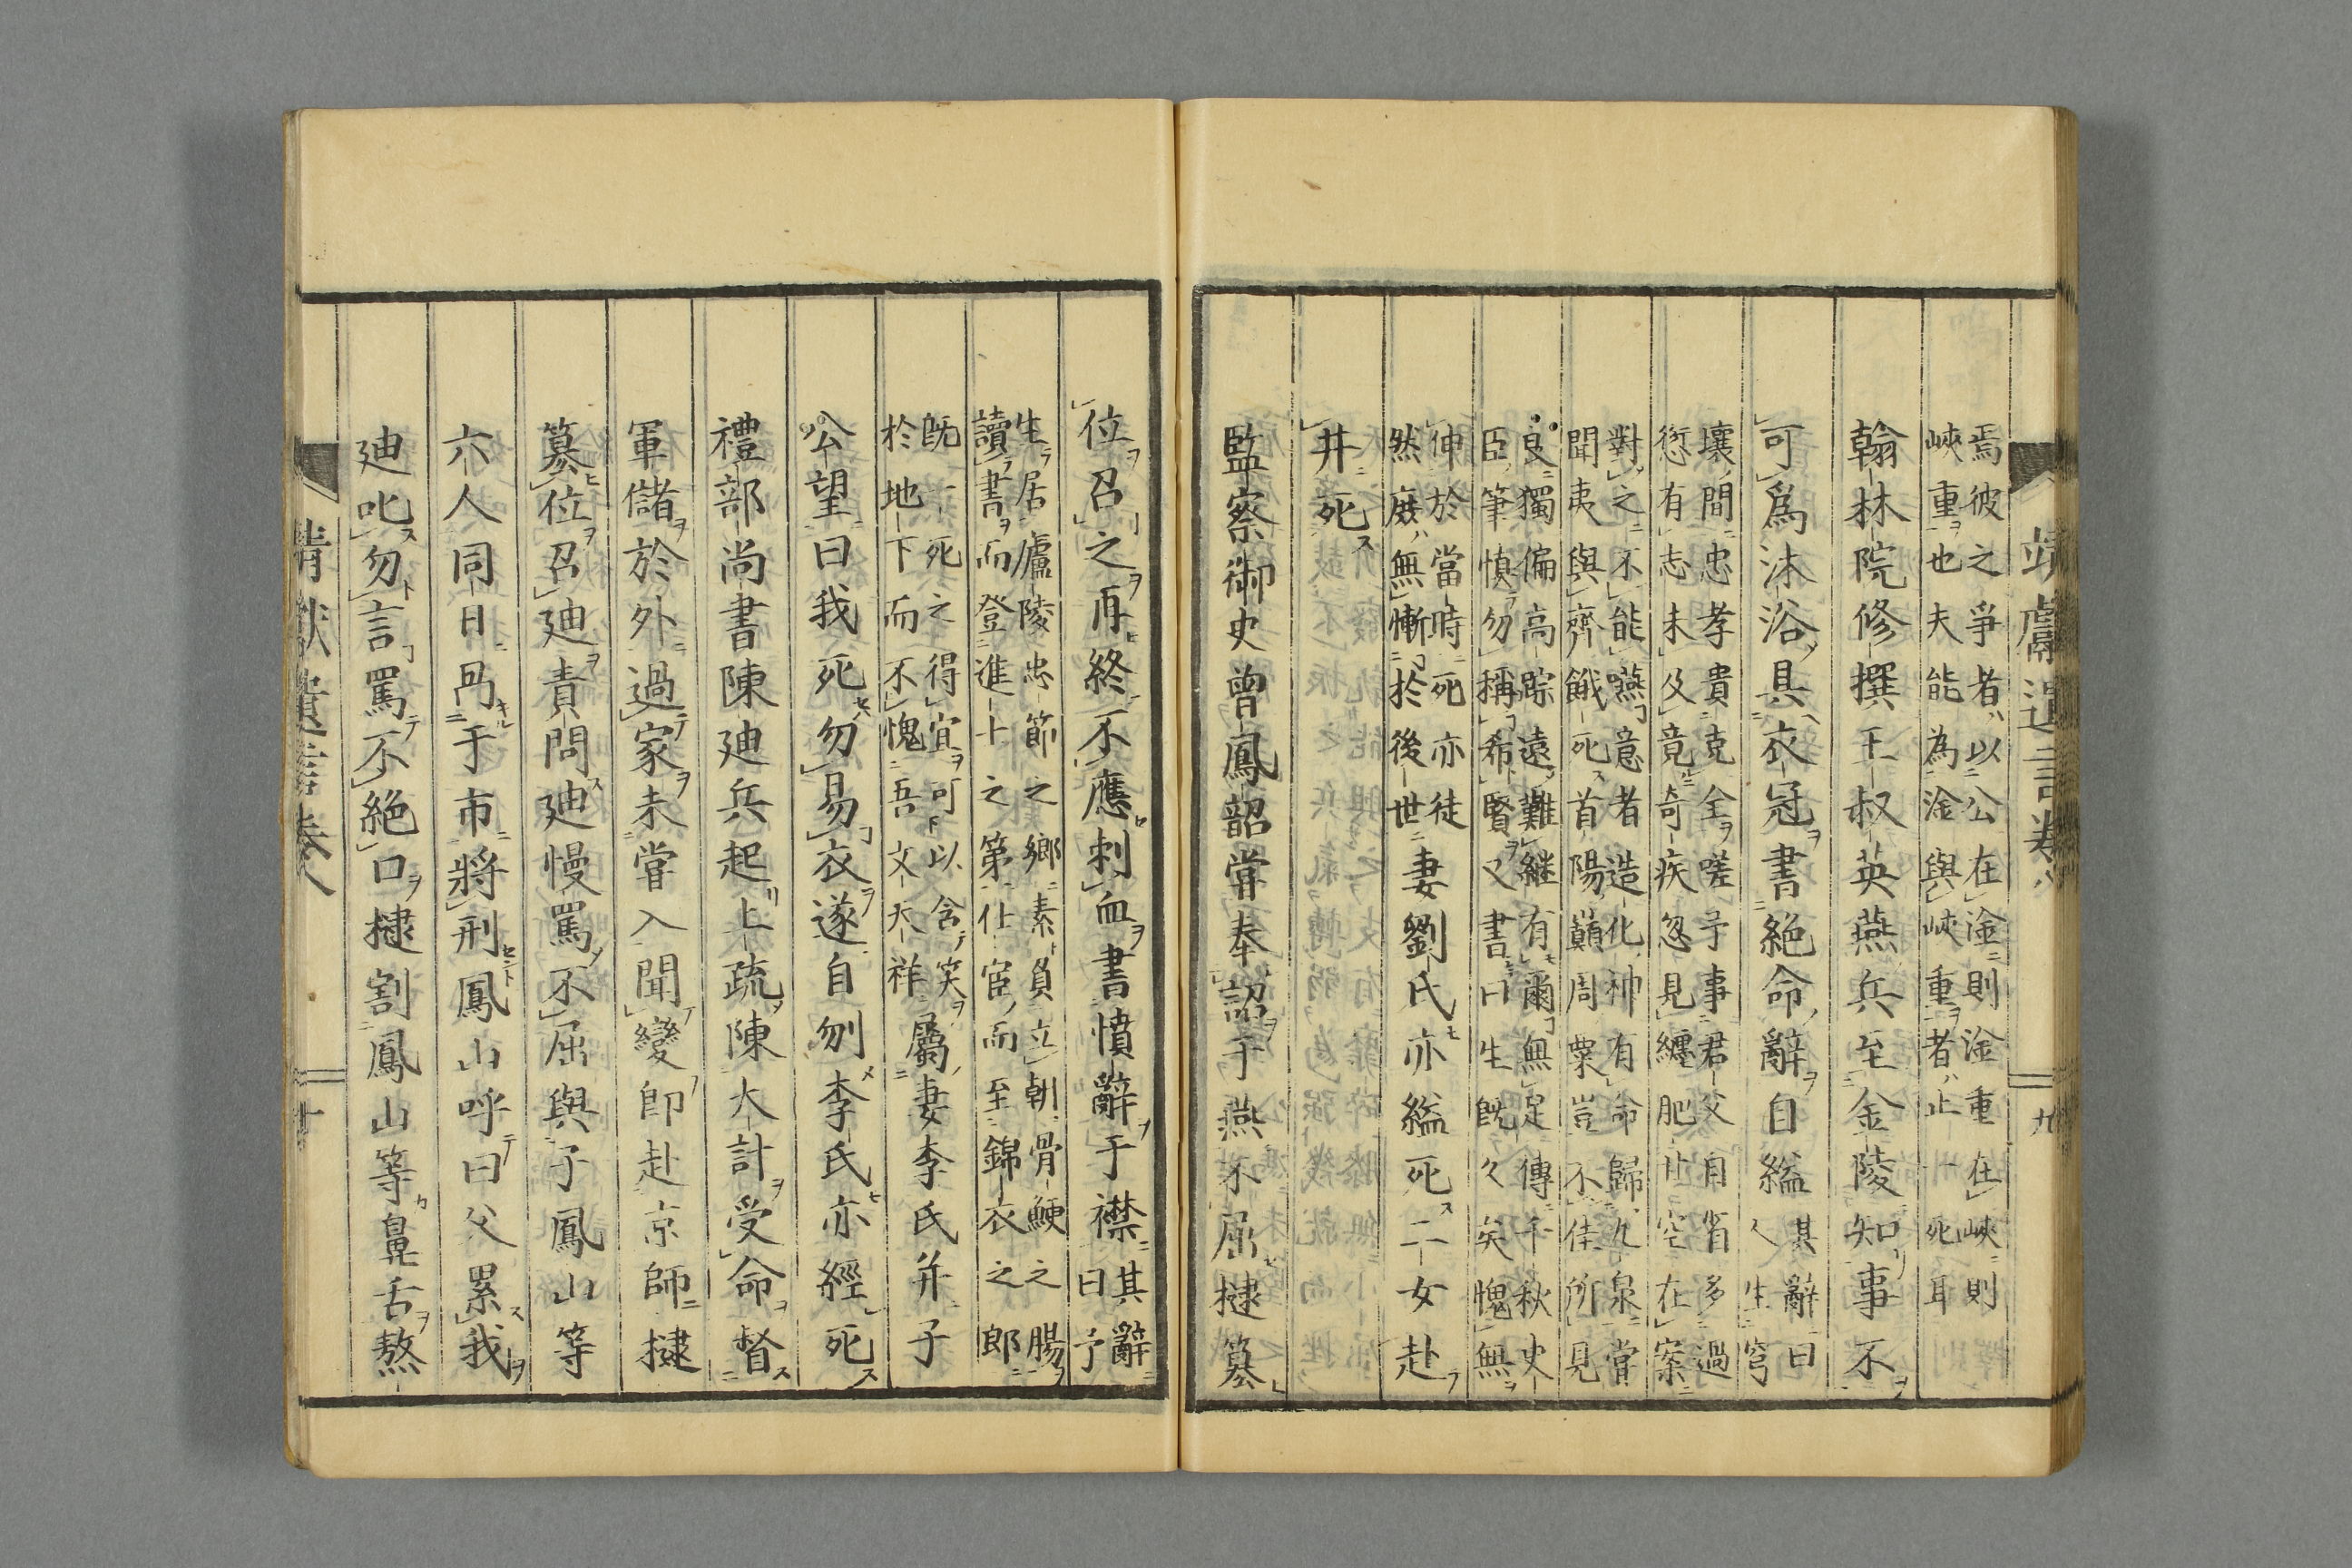 靖獻遺言卷八　九
焉彼之爭者以公在淦則淦重在峽則
峽重也夫能為淦與峽重者止一死耳
翰林院修撰王叔英燕兵至金陵知事不
可爲沐浴具衣冠書絶命辭自縊
其辭曰
人生穹
壤間忠孝貴克全嗟予事君父自省多過
愆有志未及竟奇疾忽見纏肥甘空在案
對之不能嚥意者造化神有命歸九泉嘗
聞夷與齊餓死首陽巔周粟豈不佳所見
良獨偏高踪遠難継有爾無足傳千秋史
臣筆慎勿稱希賢又書曰生既久矣愧無
伸於當時死亦徒
然庶無慚於後世
妻劉氏亦縊死二女赴
井死
監察御史曾鳳韶嘗奉詔于燕不屈棣簒
位召之再終不應刺血書憤辭于襟
其辭
曰予
生居廬陵忠節之鄉素負立朝骨鯁之腸
讀書而登進士之第仕宦而至錦衣之郎
既一死之得宜可以含笑
於地下而不愧吾文天祥
屬妻李氏并子
公望曰我死勿易衣遂自刎李氏亦經死
禮部尚書陳廸兵起上疏陳大計受命督
軍儲於外過家未嘗入聞變即赴京師棣
簒位召廸責問廸慢罵不屈與子鳳山等
六人同日冎于市將刑鳳山呼曰父累我
廸叱勿言罵不絶口棣割鳳山等鼻舌熬
靖獻遺言卷八　十